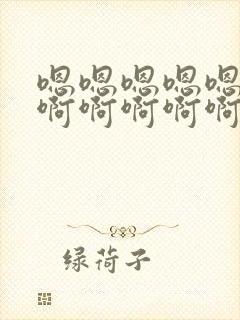 嗯嗯嗯嗯嗯
啊啊啊啊啊
绿荷子